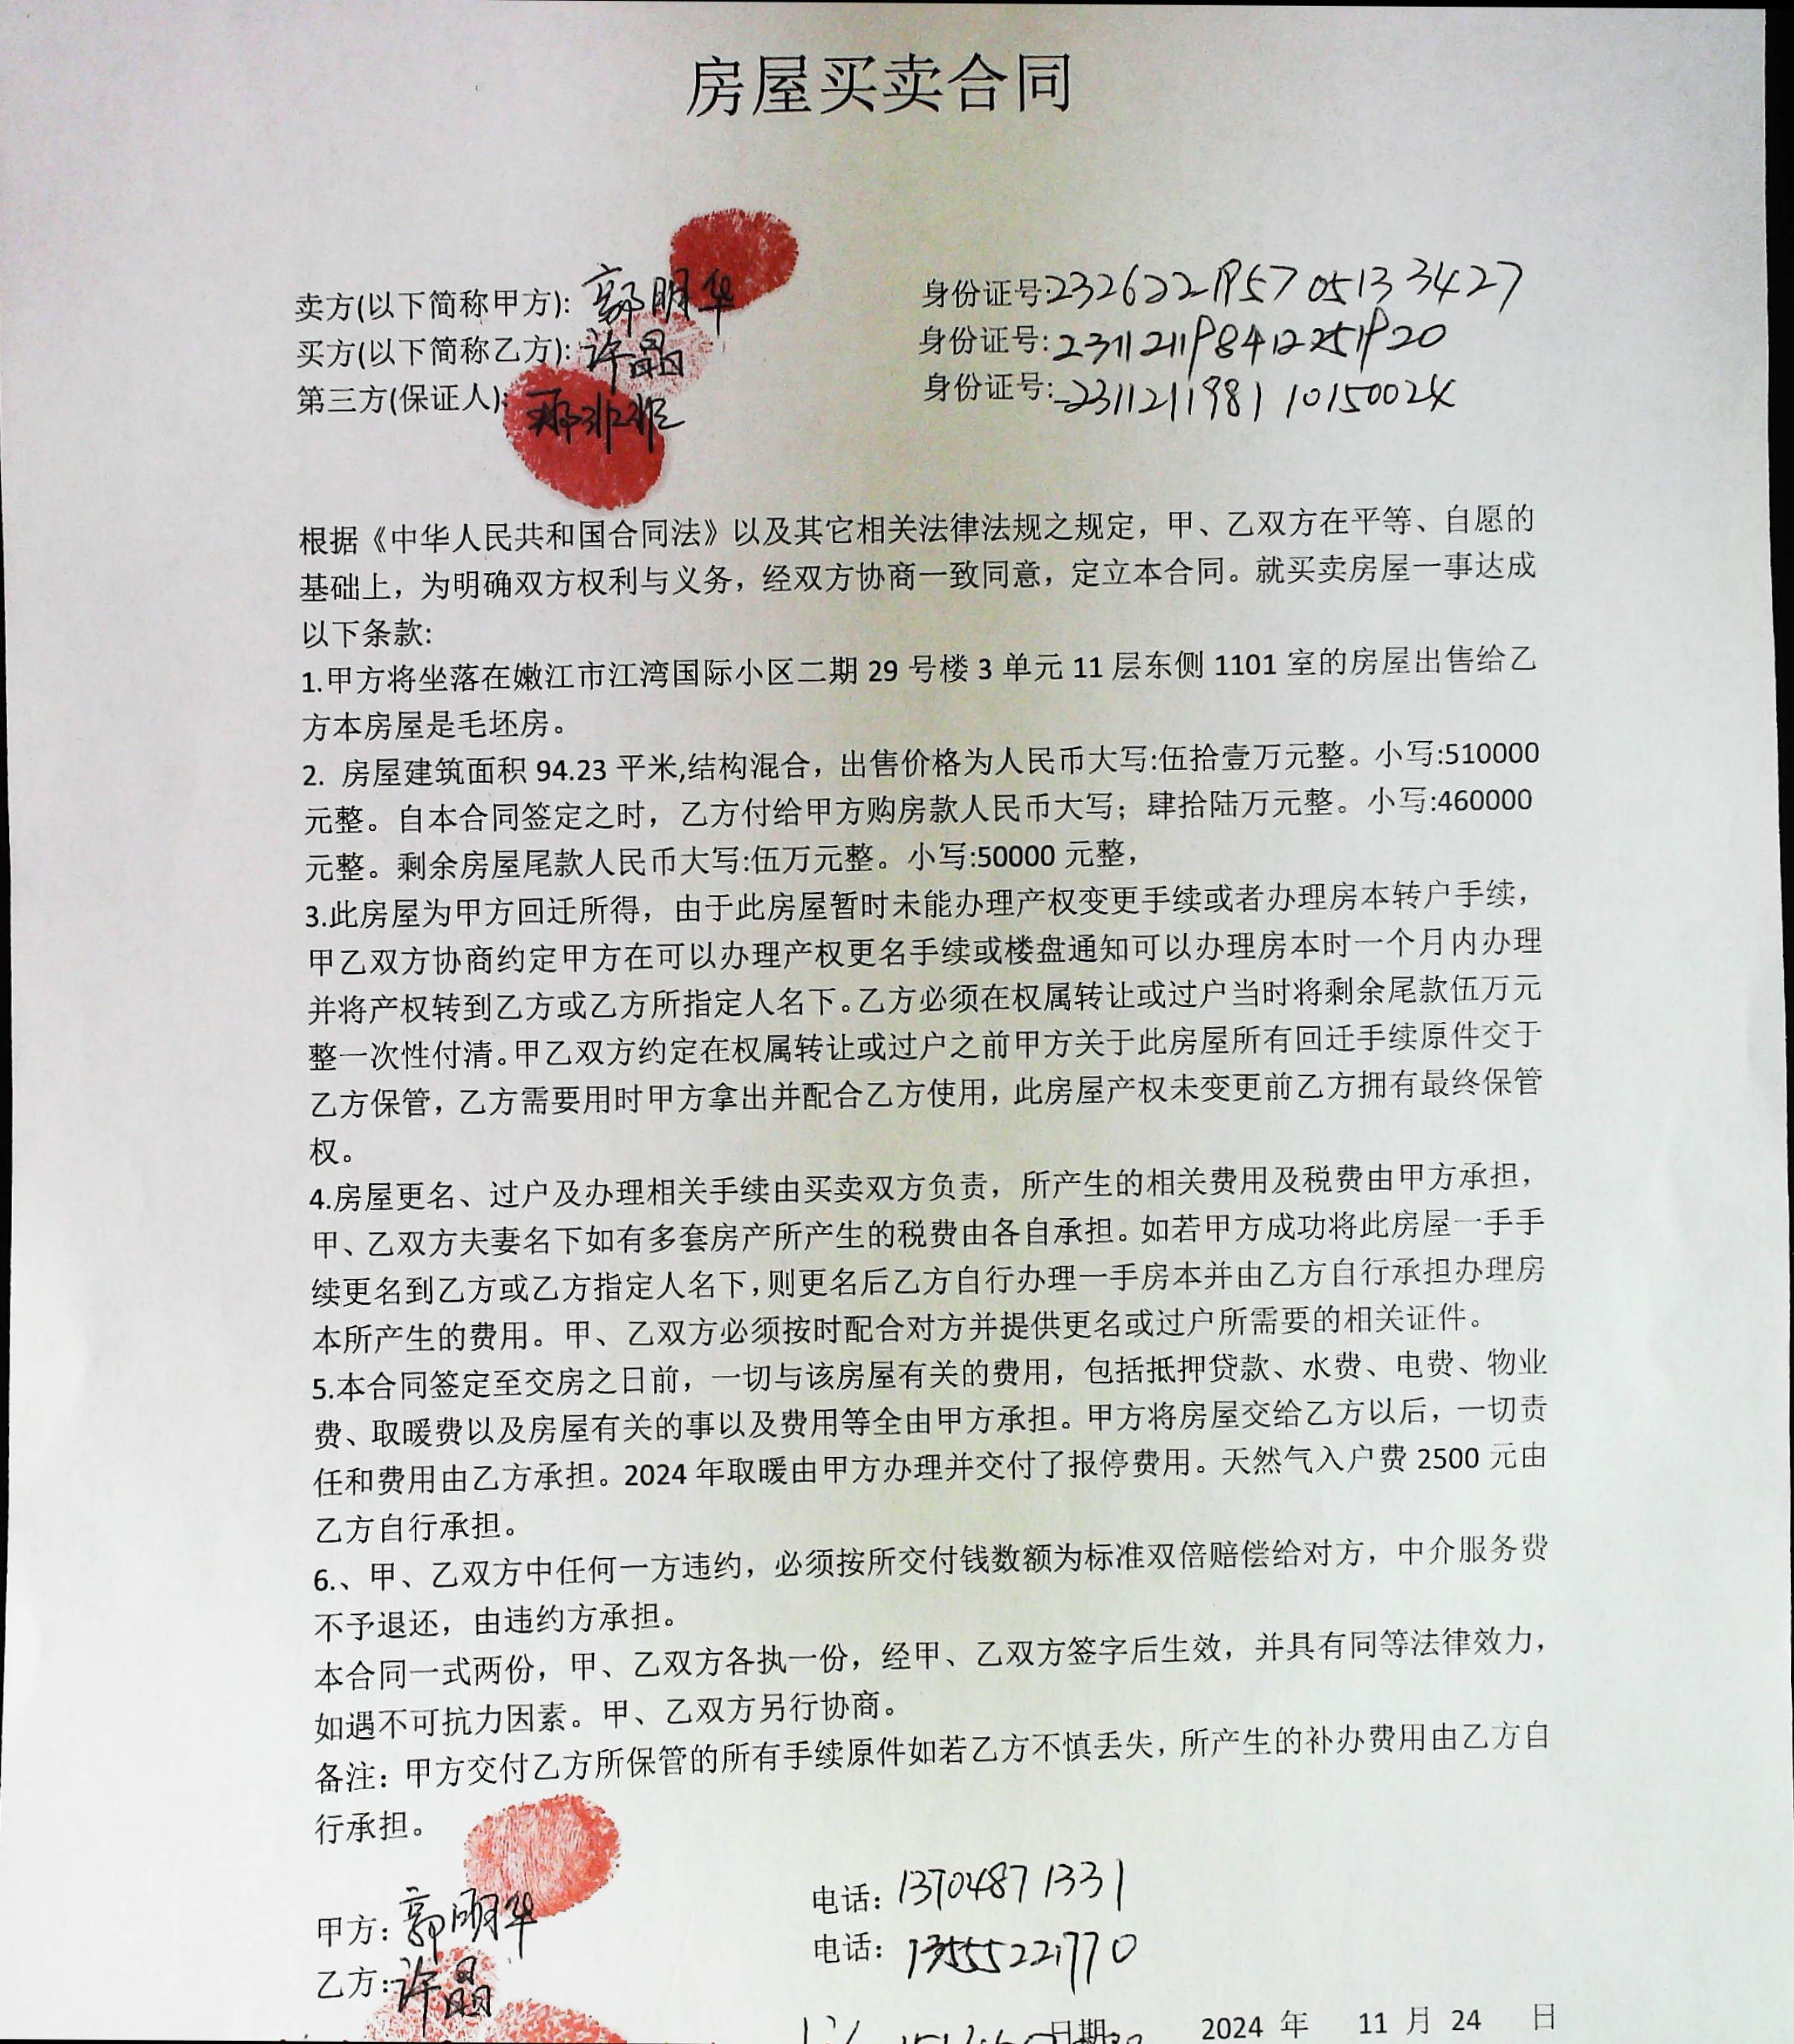 房屋买卖合同
卖方(以下简称甲方): 郭明华 身份证号:232622195705133427
买方(以下简称乙方): 许晶 身份证号:
第三方(保证人): 身份证号:23112119811015002X
根据《中华人民共和国合同法》以及其它相关法律法规之规定，甲、乙双方在平等、自愿的
基础上，为明确双方权利与义务，经双方协商一致同意，定立本合同。就买卖房屋一事达成
以下条款:
1.甲方将坐落在嫩江市江湾国际小区二期 29 号楼 3 单元 11 层东侧 1101 室的房屋出售给乙
方本房屋是毛坯房。
2. 房屋建筑面积 94.23 平米,结构混合，出售价格为人民币大写:伍拾壹万元整。小写:510000
元整。自本合同签定之时，乙方付给甲方购房款人民币大写；肆拾陆万元整。小写:460000
元整。剩余房屋尾款人民币大写:伍万元整。小写:50000 元整，
3.此房屋为甲方回迁所得，由于此房屋暂时未能办理产权变更手续或者办理房本转户手续，
甲乙双方协商约定甲方在可以办理产权更名手续或楼盘通知可以办理房本时一个月内办理
并将产权转到乙方或乙方所指定人名下。乙方必须在权属转让或过户当时将剩余尾款伍万元
整一次性付清。甲乙双方约定在权属转让或过户之前甲方关于此房屋所有回迁手续原件交于
乙方保管，乙方需要用时甲方拿出并配合乙方使用，此房屋产权未变更前乙方拥有最终保管
权。
4.房屋更名、过户及办理相关手续由买卖双方负责，所产生的相关费用及税费由甲方承担，
甲、乙双方夫妻名下如有多套房产所产生的税费由各自承担。如若甲方成功将此房屋一手手
续更名到乙方或乙方指定人名下，则更名后乙方自行办理一手房本并由乙方自行承担办理房
本所产生的费用。甲、乙双方必须按时配合对方并提供更名或过户所需要的相关证件。
5.本合同签定至交房之日前，一切与该房屋有关的费用，包括抵押贷款、水费、电费、物业
费、取暖费以及房屋有关的事以及费用等全由甲方承担。甲方将房屋交给乙方以后，一切责
任和费用由乙方承担。2024 年取暖由甲方办理并交付了报停费用。天然气入户费 2500 元由
乙方自行承担。
6.、甲、乙双方中任何一方违约，必须按所交付钱数额为标准双倍赔偿给对方，中介服务费
不予退还，由违约方承担。
本合同一式两份，甲、乙双方各执一份，经甲、乙双方签字后生效，并具有同等法律效力，
如遇不可抗力因素。甲、乙双方另行协商。
备注：甲方交付乙方所保管的所有手续原件如若乙方不慎丢失，所产生的补办费用由乙方自
行承担。
甲方：郭明华 电话：13704871331
乙方：许晶 电话：13555221770
日期 2024 年 11 月 24 日